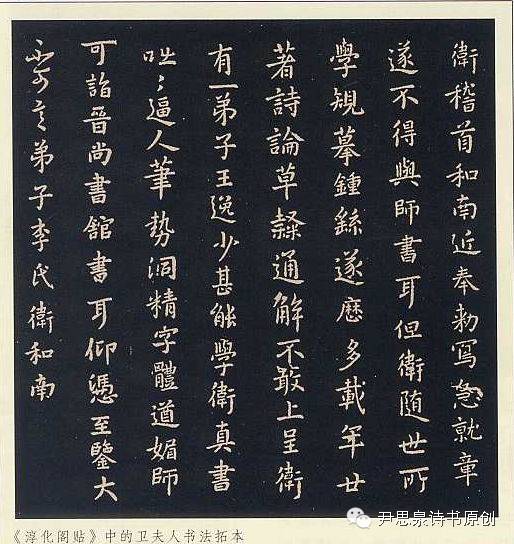 衛稽首和南近奉勑寫急就章
遂不得與師書耳但衛随世所
學規摹鍾繇遂歷多載年廿
著詩論草隸通解不敢上呈衛
有一弟子王逸少甚能學衛真書
咄〻逼人筆勢洞精字體遒媚師
可詣晉尚書館書耳仰憑至鑒大
不可言弟子李氏衛和南
《淳化阁贴》中的卫夫人书法拓本
尹思泉诗书原创